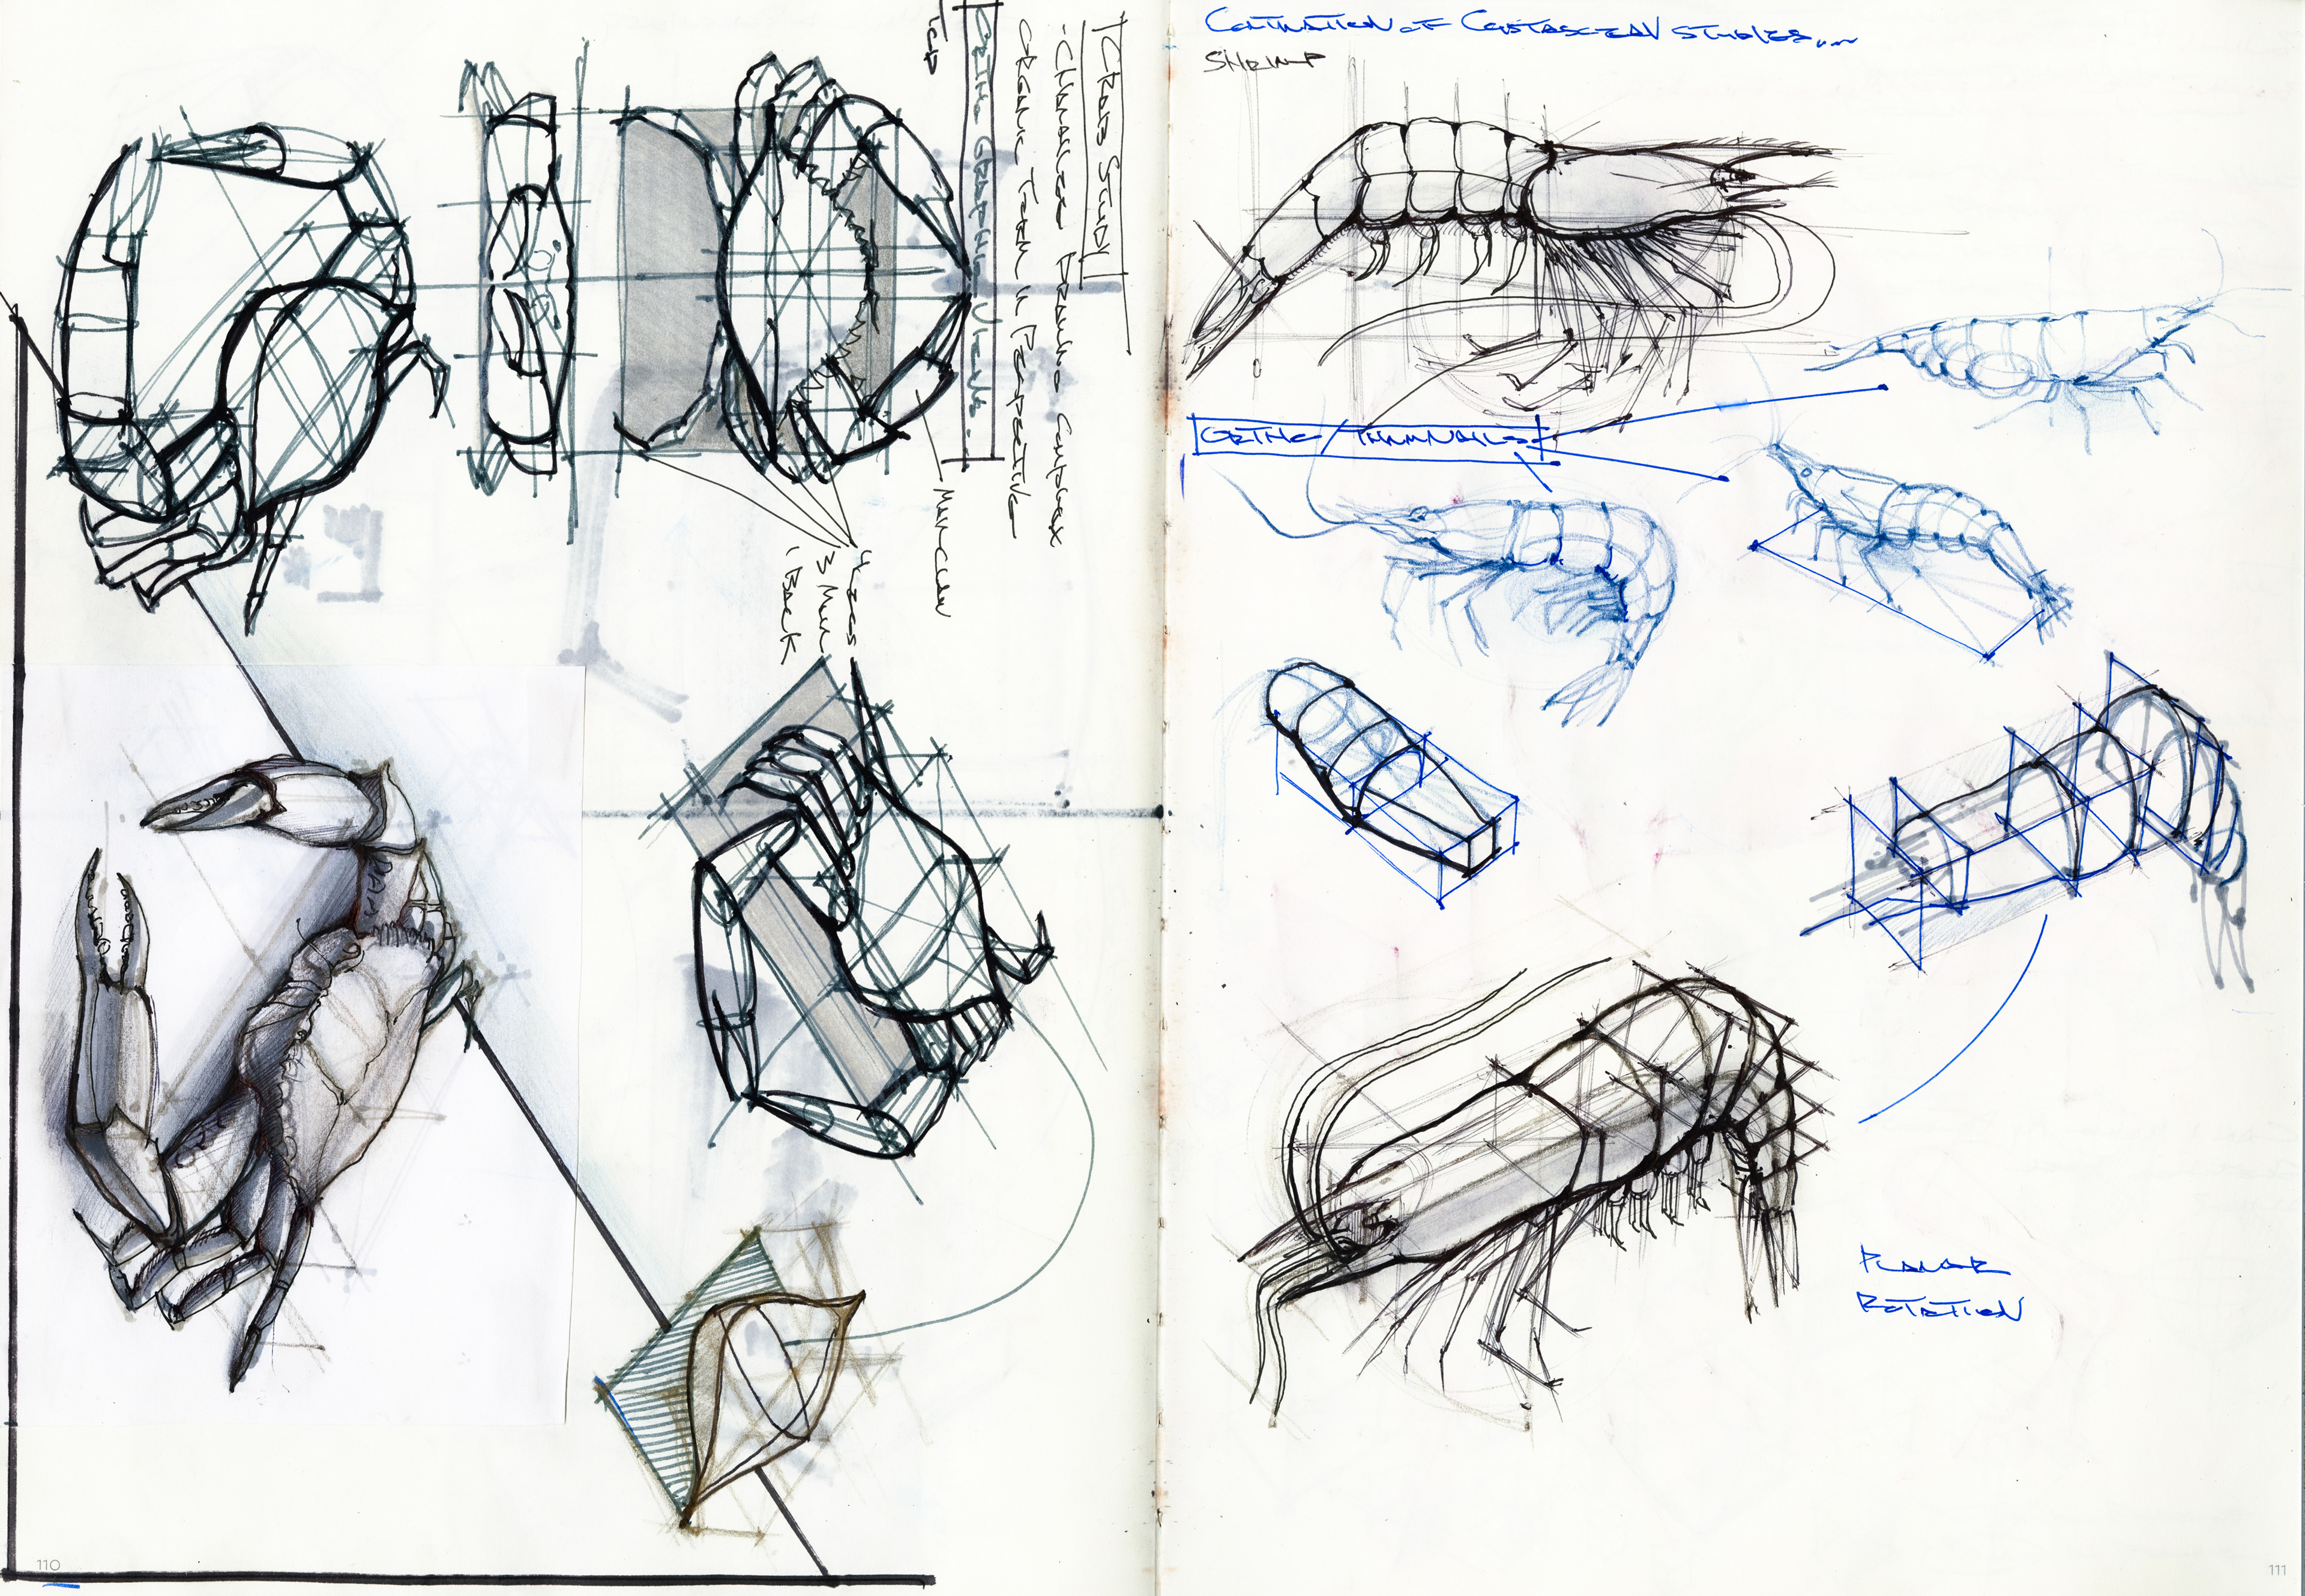 CRAB STUDY
- CHALLENGE DRAWING COMPLEX
ORGANIC FORM IN PERSPECTIVE
ORTHOGRAPHIC VIEWS..
TOP
MAIN CLAW
4 LEGS
3 MAIN
1 BACK
110
CONTINATION OF CRUSTASCEAN STUDIES...
SHRIMP
ORTHO/THUMNAILS
PLANAR
ROTATION
111